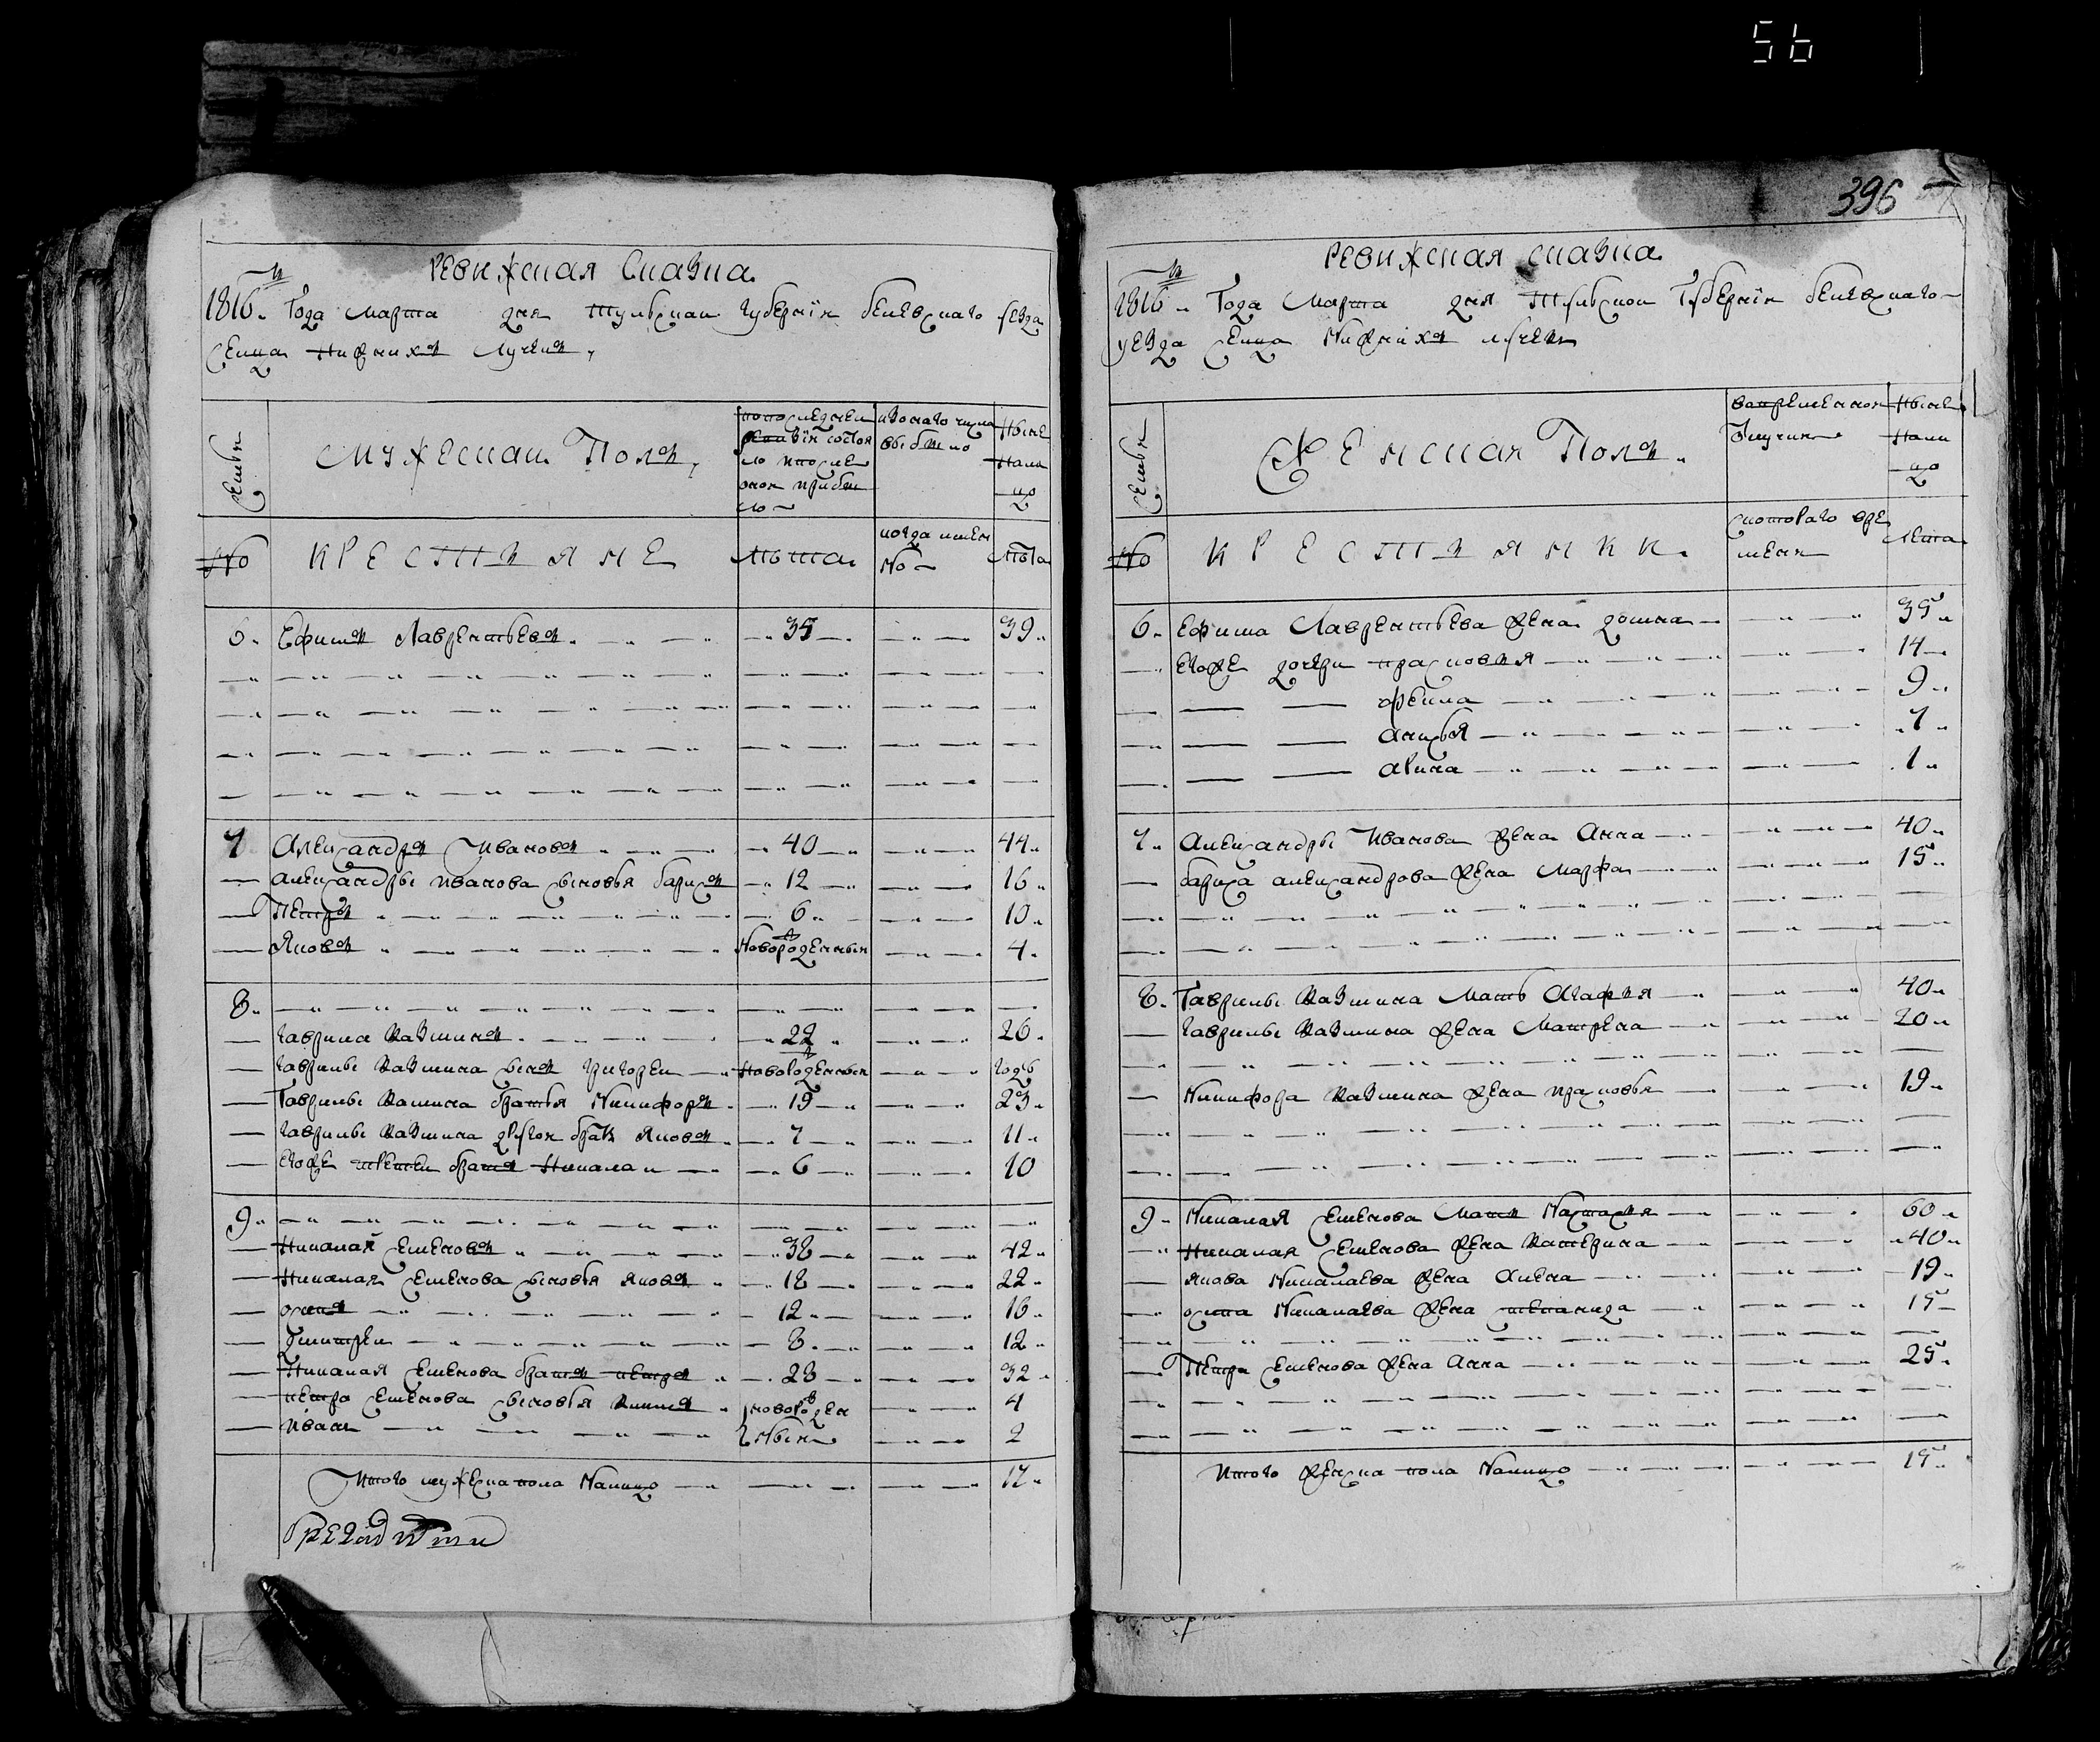 56
396
РЕВИЖСКАЯ СКАЗКА
1816го Года Марта дня Тульской губернїи белевскаго уезда
селца Нижнихъ Лучекъ
семьи
МУЖЕСКАГО Полъ
по последней ревизїи состояло и после оной прибыло
изоного числа выбыло
Ныне налицо
No
КРЕСТЬЯНЕ
Лѣта
когда имянно
Лѣта
6. Ефимъ Лаврентьевъ 35 39
7 Александръ Ивановъ 40 44
Александры Иванова сыновья барисъ 12 16
Петръ 6 10
Яковъ Новорожденный 4
8.
гаврила Казминъ 22 26
гаврилы Казмина сынъ григореи Новорожденныи годъ
Гаврилы Казмина братья Никифоръ 19 23
гаврилы Казмина другои братъ Яковъ 7 11
Егоже третеи братъ Николаи 6 10
9.
Николай Семеновъ 38 42
Николая Семенова сыновья яковъ 18 22
осипъ 12 16
Дмитреи 8 12
Николая Семенова братъ петръ 28 32
петра Семенова сыновья новорожден 4
Иванъ ныи 2
Итого мужеска пола Налицо 17
РЕВИЖСКАЯ СКАЗКА
1816го Года Марта дня Тульскои Губернїи белевскаго
уезда селца Нижнихъ лучекъ
Семьи
ЖЕНСКАЯ Полъ
вовременнои отлучки
Ныне налицо
No
КРЕСТЬЯНКИ
с котораго времени
Лета
6. Ефима Лаврентьева жена домна 35
Егоже дочери прасковья 14
фекла 9
Анисья 7
Арина 1
7. Александры Иванова жена Анна 40
бариса александрова жена Марфа 15
8. Гаврилы Казмина Мать Агафья 40
гаврилы Казмина жена Матрена 20
Никифора Казмина жена прасковья 19
9. Николая Семенова Мать Настасья 60
Николая Семенова жена Катерина 40
якова Николаева жена Алена 19
осипа Николаева жена степанида 15
Петра Семенова жена Анна 25
Итого женска пола Налицо 15